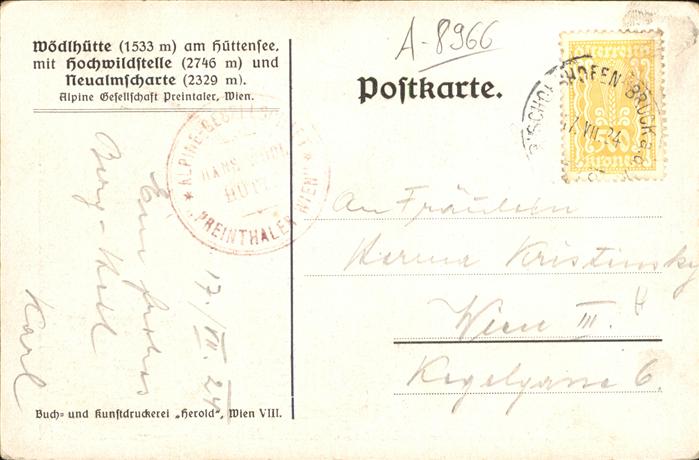 Wödlhütte (1533 m) am Hüttensee.
mit Hochwildstelle (2746 m) und
Neualmscharte (2329 m).
Alpine Gesellschaft Preintaler, Wien.
A-8966
Postkarte.
österreich
kronen
BISCHOFSHOFEN-BRUCK a.d.
17.VII.24
ALPINE GESELLSCHAFT
HANS WÖDL
HÜTTE
"PREINTHALER" WIEN
Ein frohes
Berg-Heil
Karl
17./VII. 24
An Fräulein
Herma Kristinsky
Wien III.
Kegelgasse 6.
Buch- und Kunstdruckerei „Herold", Wien VIII.